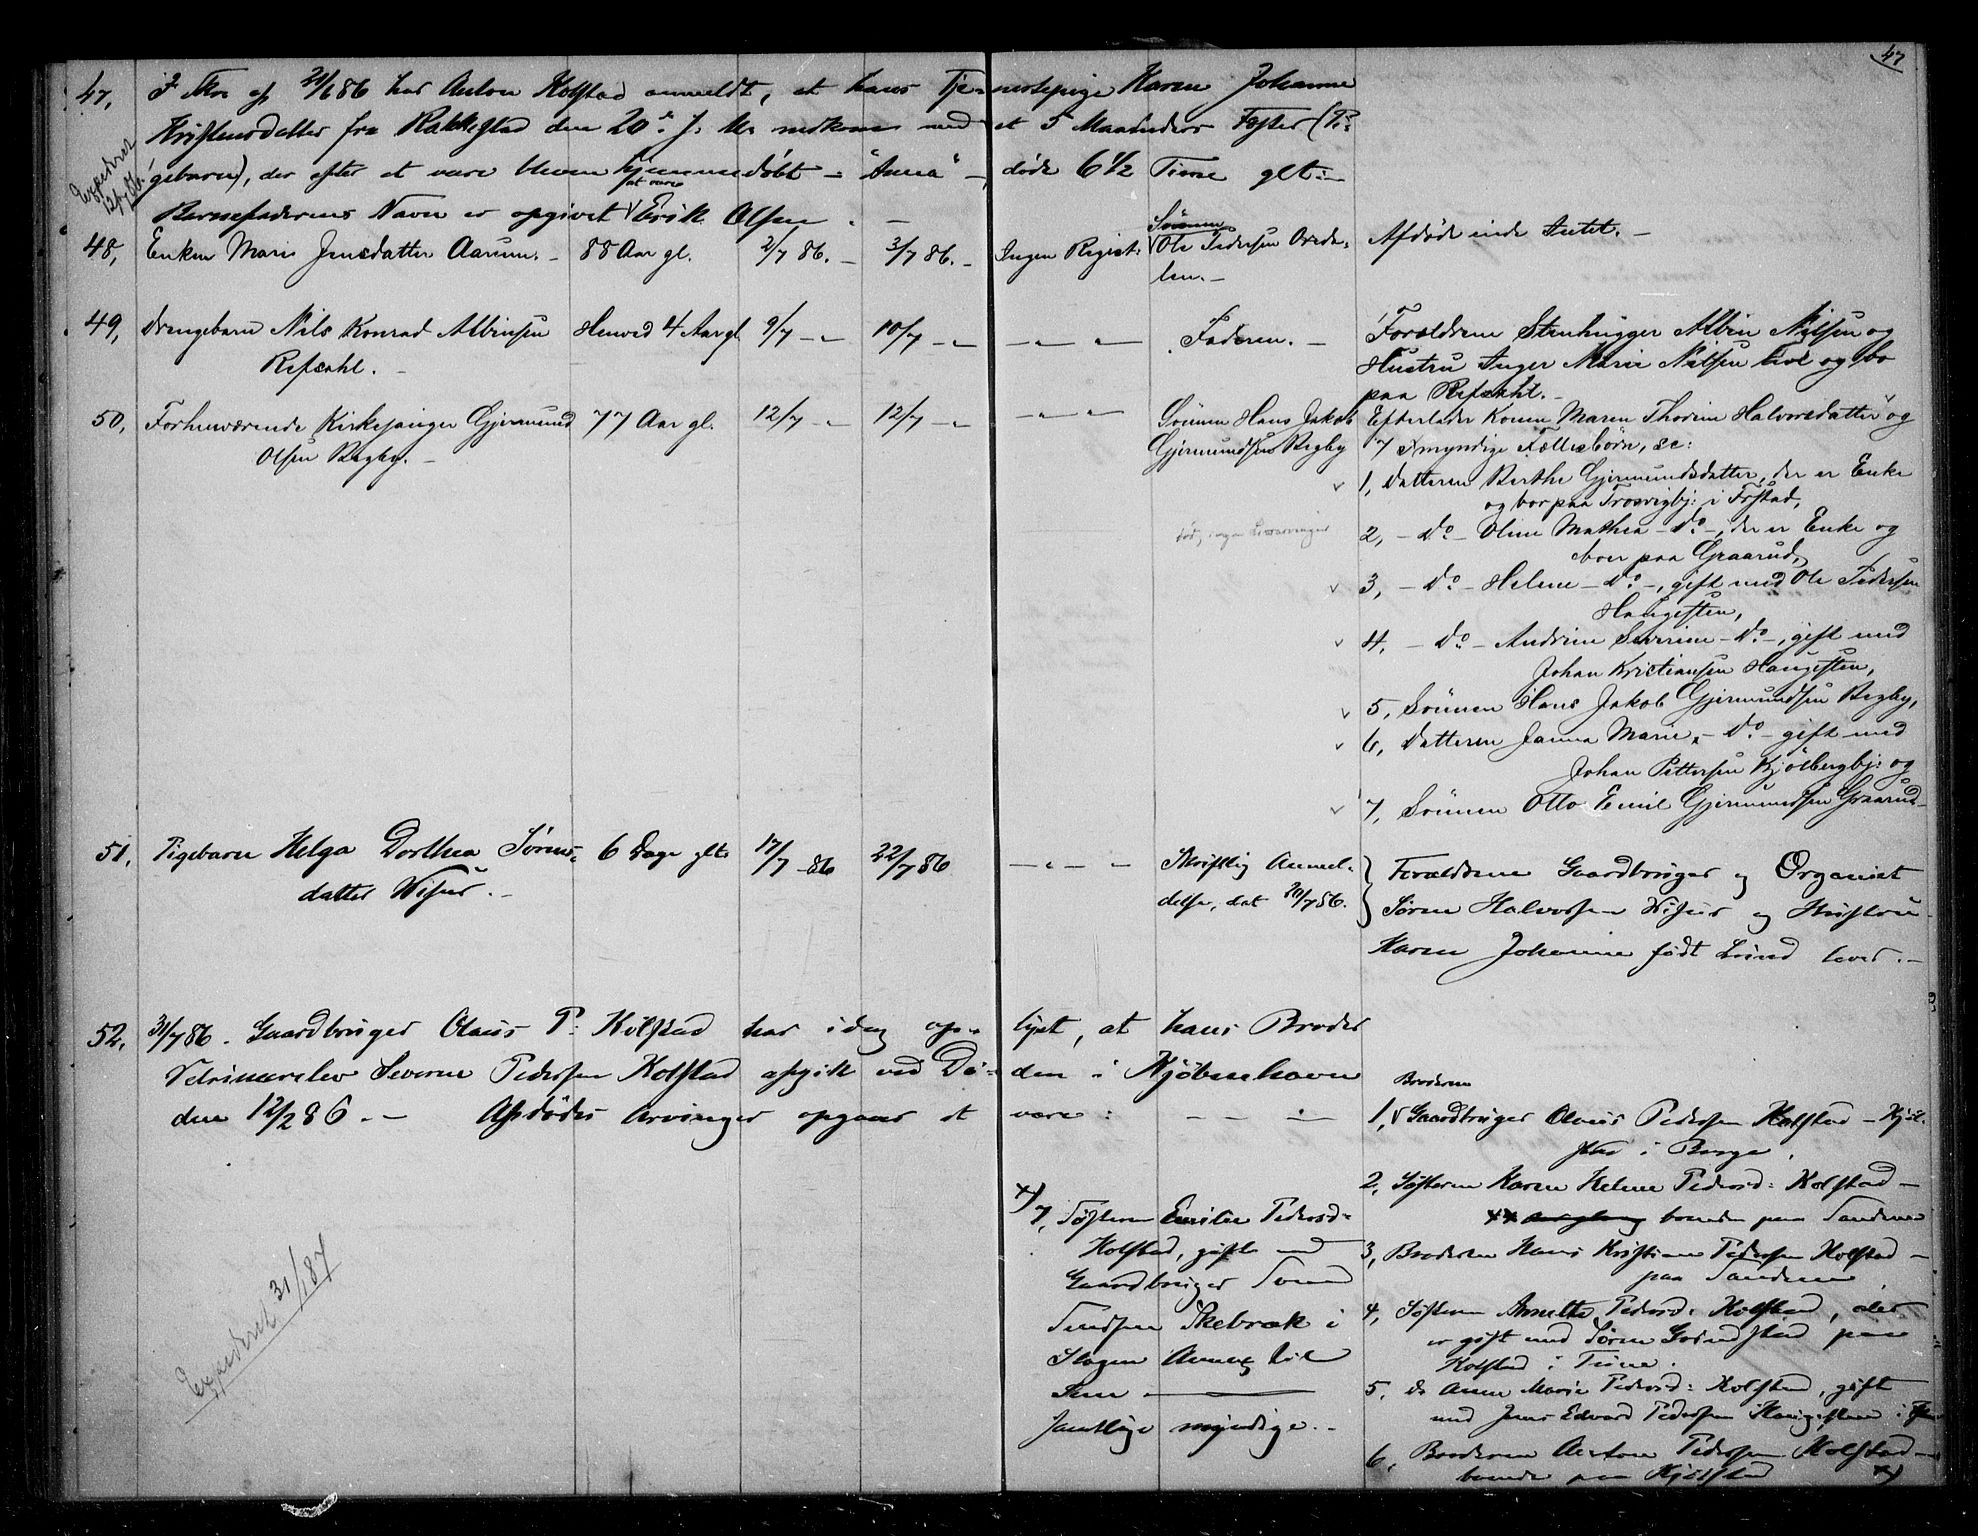 47
47, I Skr. af 21/6 86 har Anton Kolstad anmeldt, at hans Tjenestepige Karen Johanne
Kristensdatter fra Rakkestad den 20de f. M. nedkom med et 5 Maaneders Foster (Pi-
gebarn), der efter at være bleven hjemmedøbt - "Anna" -, døde 6 1/2 Time glt.-
Barnefaderens Navn er opgivet at være Erik Olsen. -
Expederet
48, Enken Marie Jensdatter Aarum. - 88 Aar gl. 2/7 86. - 3/7 86. - Ingen Regist: Sønnen Ole Pedersen Ørede- Afdøde eiede Intet. -
len. -
49, Drengebarn Nils Konrad Albinsen Henved 4 Aar gl. 9/7 - " 10/7 - " - " - " Faderen. - Forældrene Stenhugger Albin Nilsen og
Refsahl. - Hustru Inger Marie Nilsen leve og bo
paa Refsahl. -
50, Forhenværende Kirkesanger Gjermund 77 Aar gl. 12/7 - " 12/7 - " - " - " Sønnen Hans Jakob Efterlader Konen Maren Thorine Halvorsdatter og
Olsen Begby. - Gjermundsen Begby 7 myndige Fællesbørn, sc:
1, Datteren Berthe Gjermundsdatter, der er Enke
og bor paa Trosvigbj: i Frstad,
død, ingen Livsarvinger 2, - Do - Oline Mathea - Do -, der er Enke og
boer paa Graarud,
3, - Do - Helene - Do -, gift med Ole Pedersen
Haugesten,
4, - Do - Andrine Severine - Do -, gift med
Johan Kristiansen Haugesten,
5, Sønnen Hans Jakob Gjermundsen Begby,
6, Datteren Janna Marie, - Do - gift med
Johan Pettersen Kjølbergbj: og
7, Sønnen Otto Emil Gjermundsen Graarud
51, Pigebarn Helga Dorthea Sørens- 6 Dage glt. 17/7 - 86 22/7 86 - " - " Skriftlig Anmel- Forældrene Gaardbruger og Organist
datter Visur. - delse, dat 20/7 86. Søren Halvorsen Visur og Hustru
Karen Johanne født Lund lever. -
52, 31/7 86. Gaardbruger Olaus P: Kolstad har idag op- lyst, at hans Broder
Veterinærelev Severin Pedersen Kolstad afgik ved Dø- den i Kjøbenhavn
den 12/2 86. - Afdødes Arvinger opgaves at være:
Broderen
1, Gaardbruger Olaus Pedersen Kolstad - Kjøl-
stad i Borge.
2, Søsteren Karen Helene Pedersd: Kolstad -
boende paa Sandem
3, Broderen Hans Kristian Pedersen Kolstad -
paa Sandem
4, Søsteren Annette Pedersd: Kolstad, der
er gift med Søren Grindstad paa
Kolstad i Tune.
5, Do Anne Marie Pedersd: Kolstad, gift
med Jens Edvard Pedersen Haugesten i
6, Broderen Anton Pedersen Kolstad -
boende paa Kjølstad x)
x) 7, Søsteren Emilie Pedersd-
Kolstad, gift med
Gaardbruger
Skebræk i
Slagen Annex til
Sem
Samtlige myndige. -
Expederet 31/1 87